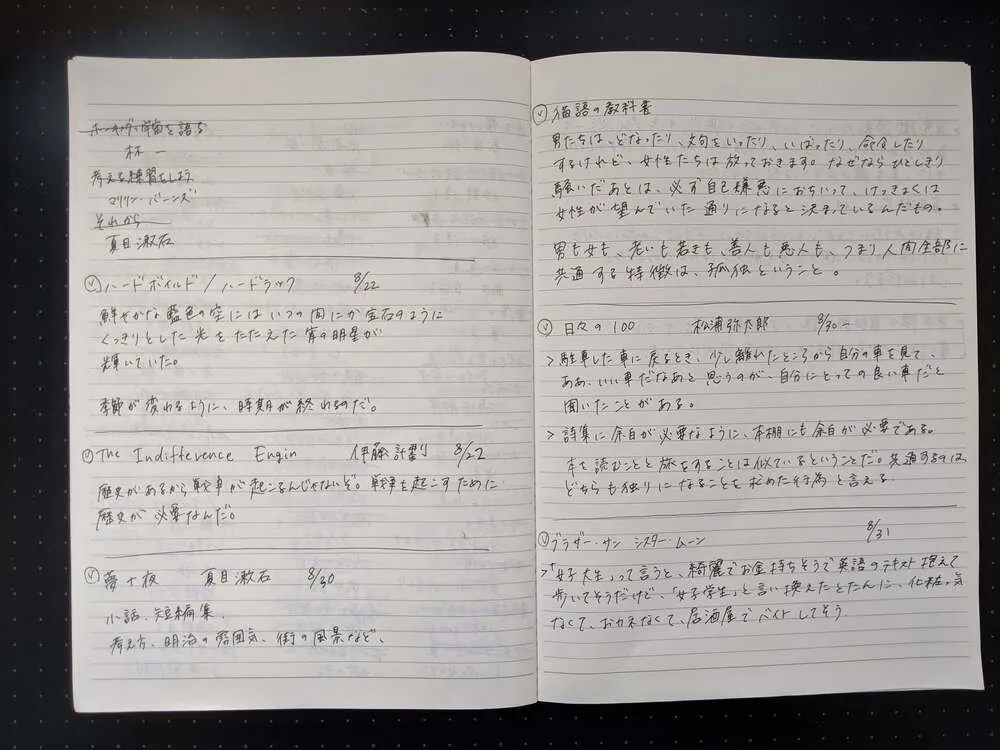 ホーキング、宇宙を語る
林 一
考える練習をしよう
マリリン・バーンズ
それから
夏目漱石
ⓥ ハードボイルド/ハードラック 8/22
鮮やかな藍色の空にはいつの間にか宝石のように
くっきりとした光をたたえた宵の明星が
輝いていた。
季節が変わるように、時期が終れるのだ。
ⓥ The Indifference Engin 伊藤計劃 8/22
歴史があるから戦争が起こるんじゃないぞ。戦争を起こすために
歴史が必要なんだ。
ⓥ 夢十夜 夏目漱石 8/30
小話、短編集、
考え方、明治の雰囲気、街の風景など、
ⓥ 猫語の教科書
男たちは、どなったり、文句をいったり、いばったり、命令したり
するけれど、女性たちは放っておきます。なぜならひとしきり
騒いだあとは、必ず自己嫌悪におちいって、けっきょくは
女性が望んでいた通りになると決まっているんだもの。
男も女も、老いも若きも、善人も悪人も、つまり人間全部に
共通する特徴は、孤独ということ。
ⓥ 日々の100 松浦弥太郎 8/30-
> 駐車した車に戻るとき、少し離れたところから自分の車を見て、
ああ、いい車だなあと思うのが、自分にとっての良い車だと
聞いたことがある。
> 詩集に余白が必要なように、本棚にも余白が必要である。
本を読むことと旅をすることは似ているということだ。共通するのは、
どちらも独りになることを求めた行為と言える
ⓥ ブラザー・サン シスター・ムーン 8/31
>「女子大生」って言うと、綺麗でお金持ちそうで英語のテキスト抱えて
歩いてそうだけど、「女子学生」と言い換えたとたんに、化粧っ気
なくて、おカネなくて、居酒屋でバイトしてそう